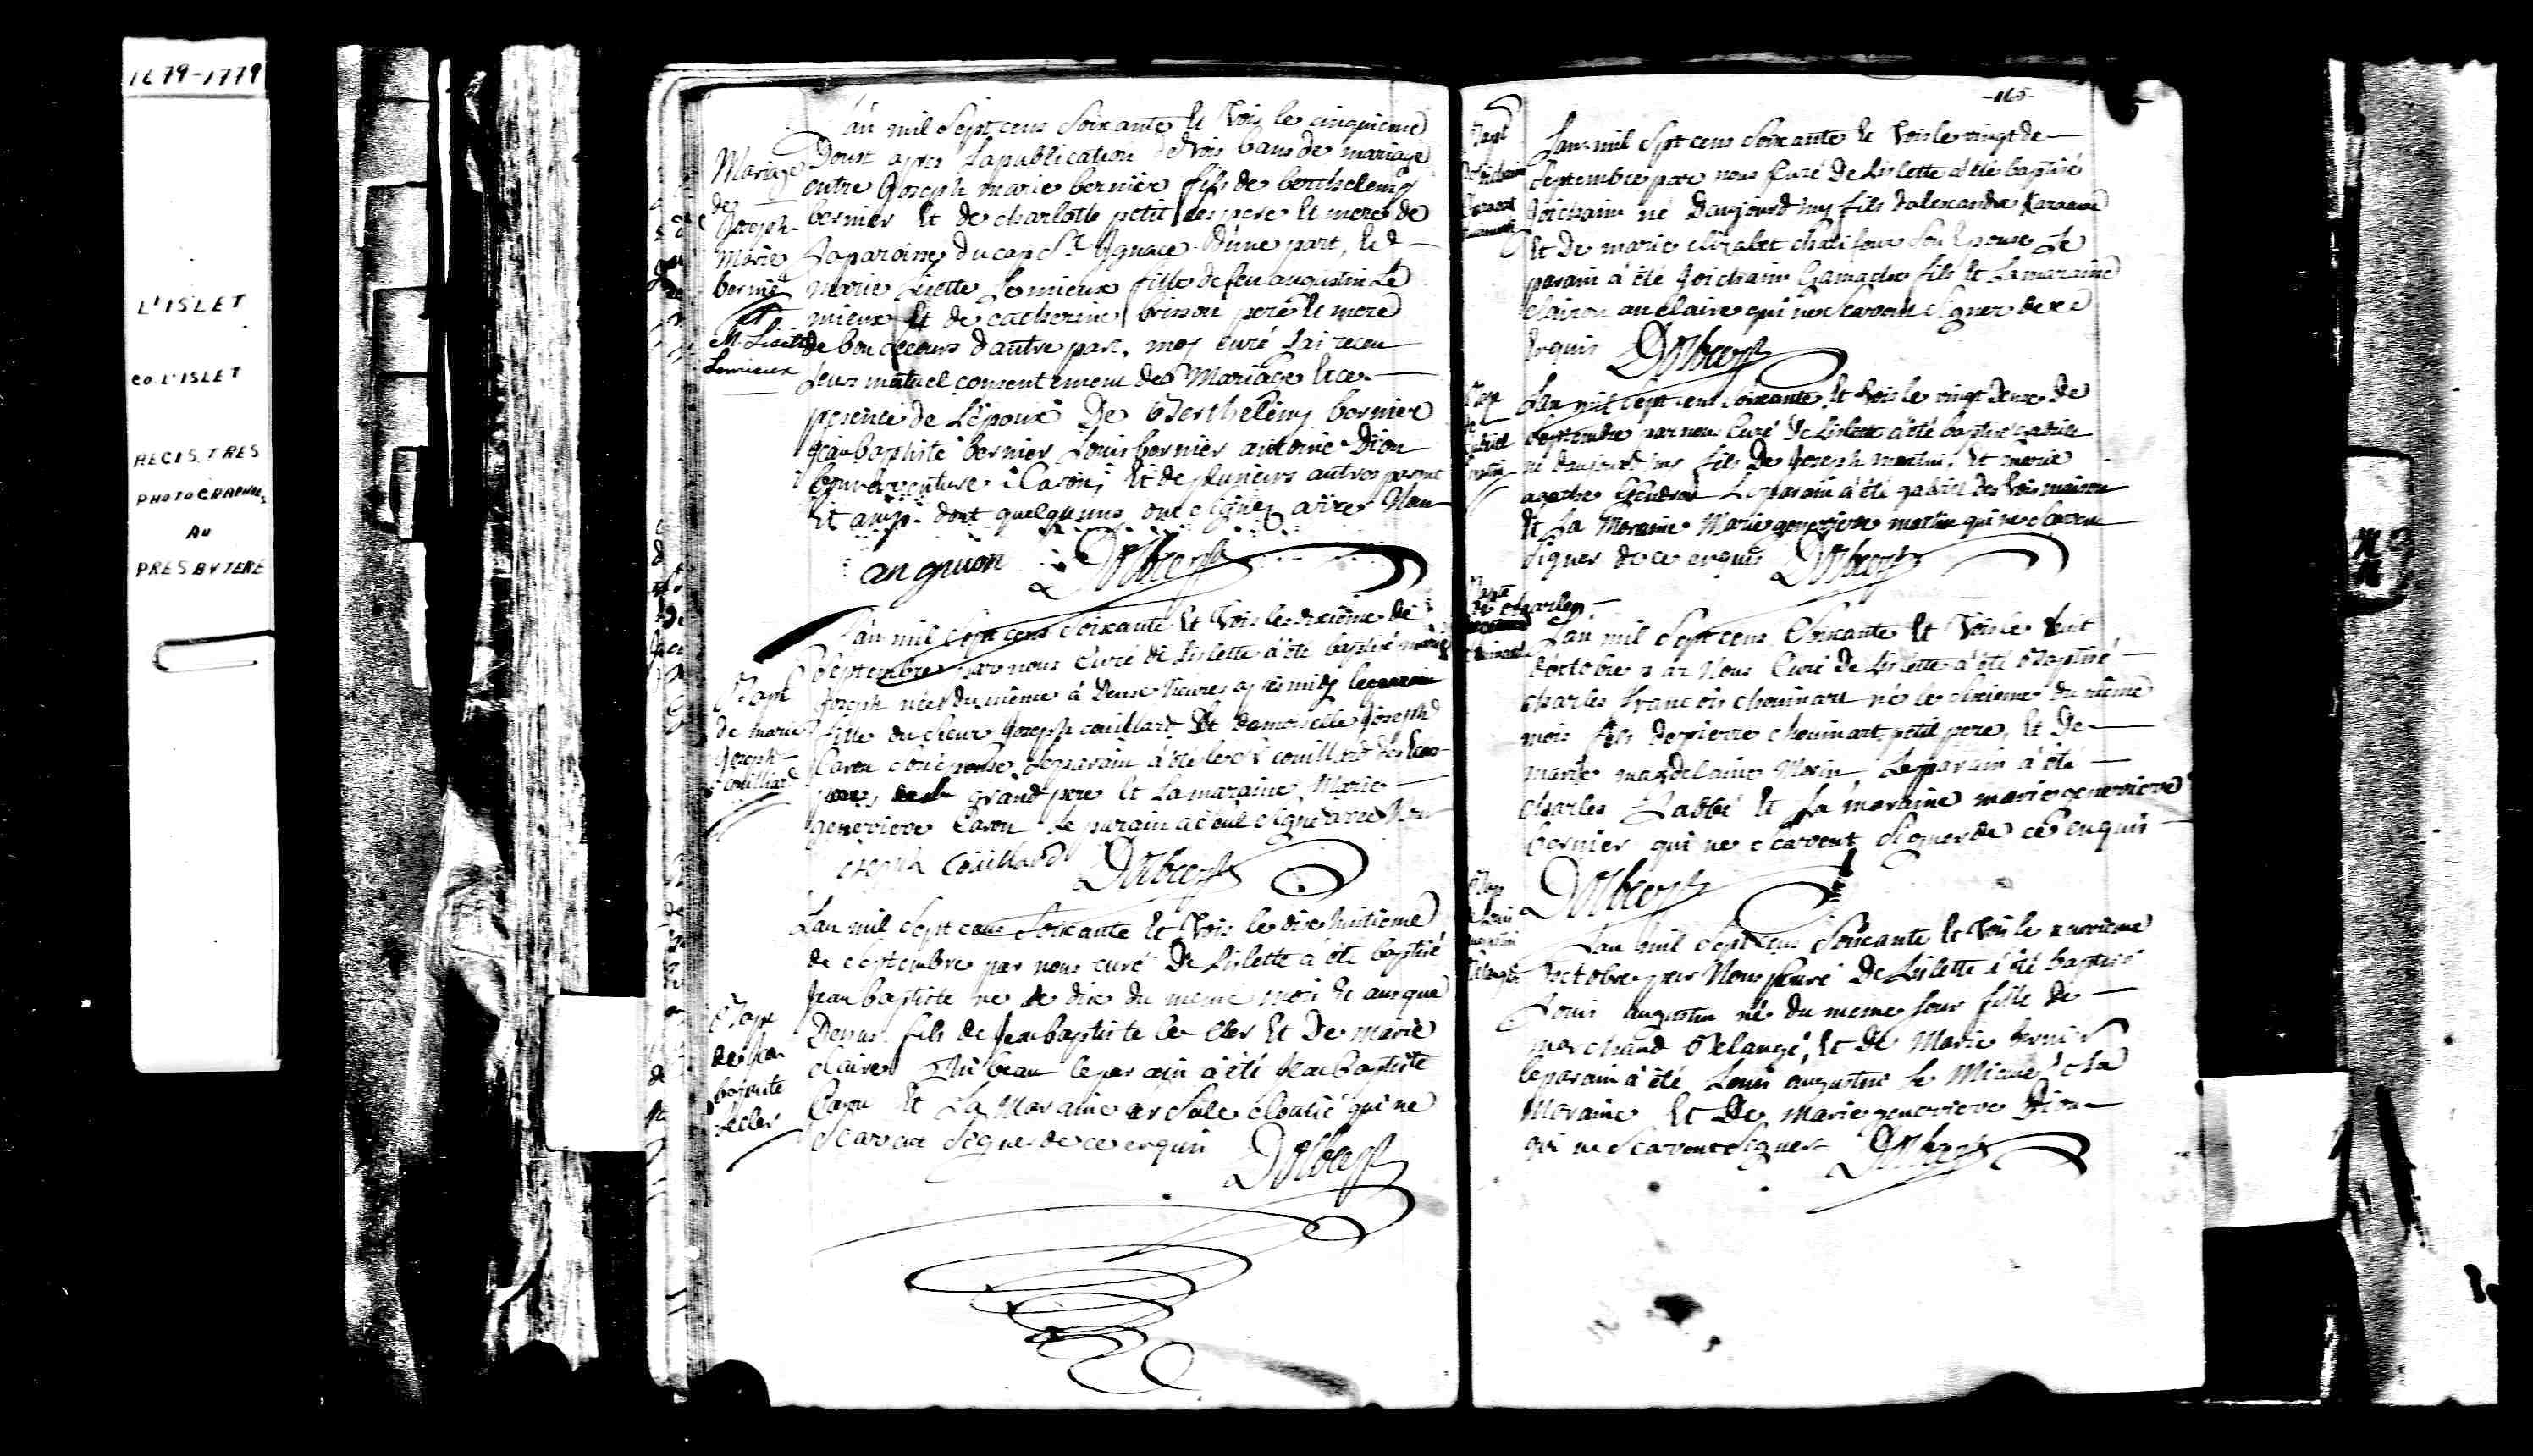 1679-1779
L'ISLET
CO. L'ISLET
REGISTRES
PHOTOGRAPHIÉS
AU
PRESBYTERE
Mariage
de
Joseph-
Marie
bernié
et
M. Lisette
Lemieux
L'an mil Sept cens Soixante et trois le cinquieme
Doust apres Lapublication de trois bans de mariage
entre Joseph marie bernier fils de berthelemy
bernier et de charlotte petit ses pere et mere de
Laparoisse du cap St Ignace d'une part, et de
marie Lisette Lemieux fille de feu augustin Le
mieux et de catherine brisson pere et mere
de bon secours d'autre part, moy curé J'ai receu
leur mutuel consentement de Mariage en
presence de L'époux De Berthelemy bernier
Jean baptiste bernier Louis bernier antoine Dion
bonaventure Caron, et de plusieurs autres parent
et amis dont quelquuns ont signez avec Nous
anguion Dolbec ptre
Bapt
de marie
Joseph
Couillard
L'an mil Sept cens Soixante et trois le dixième de
Septembre par nous Curé de Lislette a été baptisé marie
Joseph née du même à Deux heures apres midy
fille du sieur Joseph couillard et demoiselle Joseph
Caron son épouse Leparain a été le Sr couillard des
grand pere et Lamaraine Marie
genevieve Caron le parain a seul signé avec Nous
Joseph Couillard Dolbec ptre
Bapt
de Jean
baptiste
leclerc
Lan mil Sept cens Soixante et trois le dix huitieme
de Septembre par nous curé De Lislette a été baptisé
Jean baptiste né le dix du meme mois et an que
Dessus fils de Jean baptiste le cler et De marie
claire Thibeau le parain a été Jean baptiste
Caron et La Maraine ursule cloutié qui ne
Scavent Signer de ce enquis Dolbec ptre
-165-
Bapt
Lan mil Sept cens Soixante et trois le vingt de
Septembre par nous Curé De Lislette a été baptisé
Joichaim né Daujourd'huy fils dalexandre
et De marie elizabet chalifour Son Epouse Le
parain a été Joichaim Gamache fils et Lamaraine
clairon anclaire qui ne Scavent Signer de ce
Enquis Dolbec ptre
Bap
de
Gabriel
martin
Lan mil Sept cens Soixante et trois le vingt Deux De
Septembre par nous Curé De Lislette a été baptisé Gabriel
né daujourd'huy fils De Joseph martin, et marie
agathe Gendron Le parain a été gabriel des trois maison
et La Maraine Marie genevieve martin qui ne Scavent
Signer de ce enquis Dolbec ptre
Bapte
de charles
L'an mil Sept cens Soixante et trois le huit
d'octobre par Nous Curé De Lislette a été Baptisé
charles françois chouinart né le Sixieme du même
mois fils de pierre chouinart, petit pere, et De
marie magdelaine Morin Le parain a été
Charles Labbé et La maraine marie genevieve
bernier qui ne scavent Signer de ce enquis
Dolbec ptre
Bap
de Louis
augustin
Belangé
Lan mil Sept cens Soixante et trois le neuvieme
doctobre par Nous Curé De Lislette a été baptisé
Louis augustin né du meme Jour fille de
marchand Belangé, et de Marie bernier
le parain a été Louis augustin le Mieux et la
Maraine et De Marie genevieve Dion
qui ne Scavent Signer Dolbec ptre